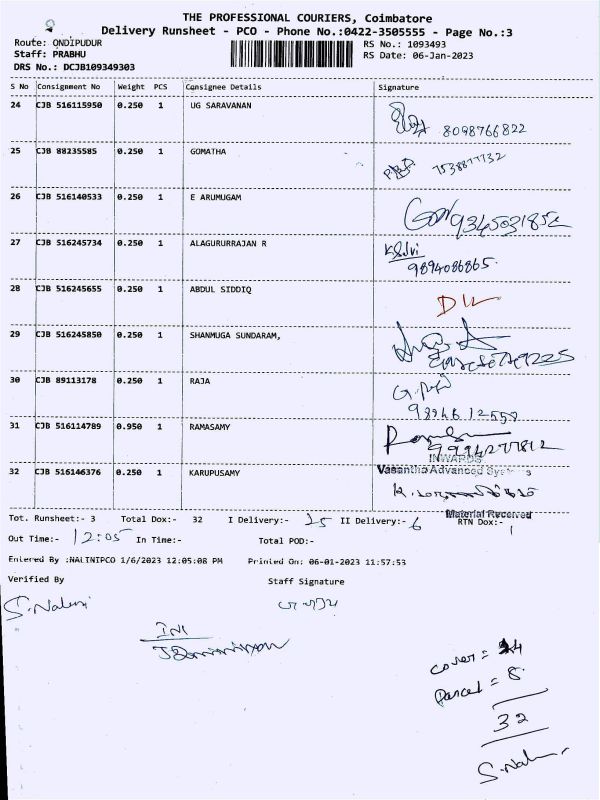 THE PROFESSIONAL COURIERS, Coimbatore
Delivery Runsheet - PCO - Phone No.:0422-3505555 - Page No.:3
Route: ONDIPUDUR RS No.: 1093493
Staff: PRABHU RS Date: 06-Jan-2023
DRS No.: DCJB109349303
S No Consignment No Weight PCS Consignee Details Signature
24 CJB 516115950 0.250 1 UG SARAVANAN 8098766822
25 CJB 88235585 0.250 1 GOMATHA
26 CJB 516140533 0.250 1 E ARUMUGAM
27 CJB 516245734 0.250 1 ALAGURURRAJAN R
9894086865.
28 CJB 516245655 0.250 1 ABDUL SIDDIQ
29 CJB 516245850 0.250 1 SHANMUGA SUNDARAM,
30 CJB 89113178 0.250 1 RAJA
31 CJB 516114789 0.950 1 RAMASAMY
9994277812
INWARDS
Vasantha Advanced Sys
32 CJB 516146376 0.250 1 KARUPUSAMY
Material Received
Tot. Runsheet:- 3 Total Dox:- 32 I Delivery:- 25 II Delivery:- 6 RTN Dox:- 1
Out Time:- 12:05 In Time:- Total POD:-
Entered By :NALINIPCO 1/6/2023 12:05:08 PM Printed On: 06-01-2023 11:57:53
Verified By Staff Signature
S.Nalini
cover = 24
parcel = 8
32
S.Nalini